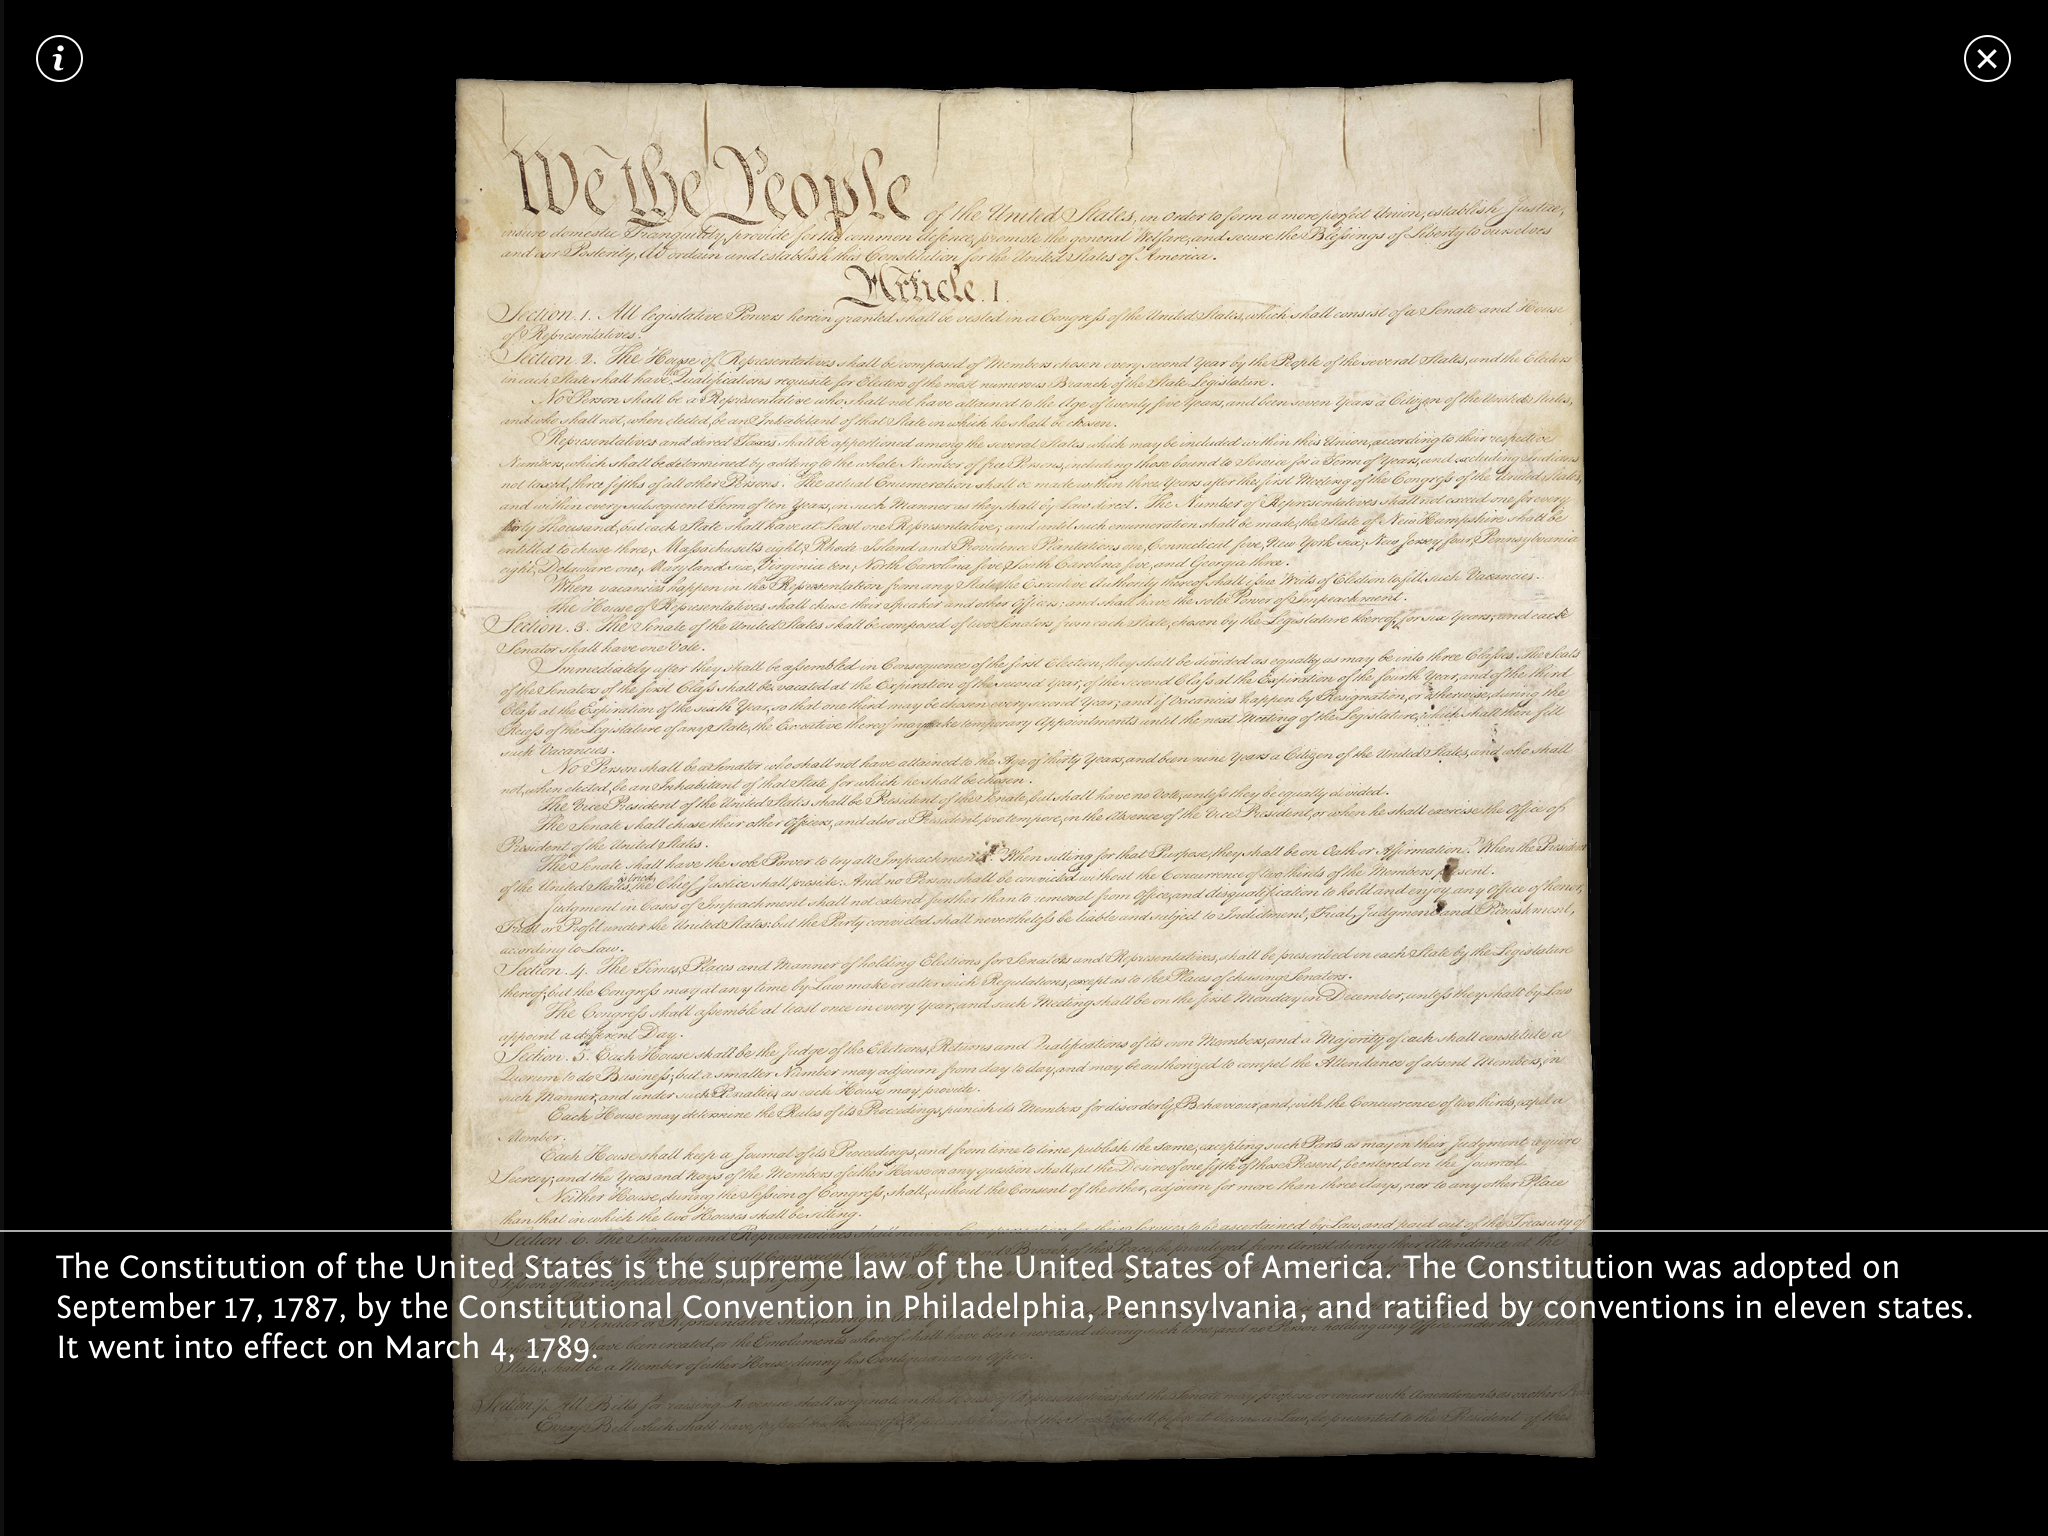 i
We the People of the United States, in Order to form a more perfect Union, establish Justice,
insure domestic Tranquility, provide for the common defence, promote the general Welfare, and secure the Blessings of Liberty to ourselves
and our Posterity, do ordain and establish this Constitution for the United States of America.
Article. I.
Section. 1. All legislative Powers herein granted shall be vested in a Congress of the United States, which shall consist of a Senate and House
of Representatives.
Section. 2. The House of Representatives shall be composed of Members chosen every second Year by the People of the several States, and the Electors
in each State shall have the Qualifications requisite for Electors of the most numerous Branch of the State Legislature.
No Person shall be a Representative who shall not have attained to the Age of twenty five Years, and been seven Years a Citizen of the United States,
and who shall not, when elected, be an Inhabitant of that State in which he shall be chosen.
Representatives and direct Taxes shall be apportioned among the several States which may be included within this Union, according to their respective
Numbers, which shall be determined by adding to the whole Number of free Persons, including those bound to Service for a Term of Years, and excluding Indians
not taxed, three fifths of all other Persons. The actual Enumeration shall be made within three Years after the first Meeting of the Congress of the United States,
and within every subsequent Term of ten Years, in such Manner as they shall by Law direct. The Number of Representatives shall not exceed one for every
thirty Thousand, but each State shall have at Least one Representative; and until such enumeration shall be made, the State of New Hampshire shall be
entitled to chuse three, Massachusetts eight, Rhode-Island and Providence Plantations one, Connecticut five, New-York six, New Jersey four, Pennsylvania
eight, Delaware one, Maryland six, Virginia ten, North Carolina five, South Carolina five, and Georgia three.
When vacancies happen in the Representation from any State, the Executive Authority thereof shall issue Writs of Election to fill such Vacancies.
The House of Representatives shall chuse their Speaker and other Officers; and shall have the sole Power of Impeachment.
Section. 3. The Senate of the United States shall be composed of two Senators from each State, chosen by the Legislature thereof, for six Years; and each
Senator shall have one Vote.
Immediately after they shall be assembled in Consequence of the first Election, they shall be divided as equally as may be into three Classes. The Seats
of the Senators of the first Class shall be vacated at the Expiration of the second Year, of the second Class at the Expiration of the fourth Year, and of the third
Class at the Expiration of the sixth Year, so that one third may be chosen every second Year; and if Vacancies happen by Resignation, or otherwise, during the
Recess of the Legislature of any State, the Executive thereof may make temporary Appointments until the next Meeting of the Legislature, which shall then fill
such Vacancies.
No Person shall be a Senator who shall not have attained to the Age of thirty Years, and been nine Years a Citizen of the United States, and who shall
not, when elected, be an Inhabitant of that State for which he shall be chosen.
The Vice President of the United States shall be President of the Senate, but shall have no Vote, unless they be equally divided.
The Senate shall chuse their other Officers, and also a President pro tempore, in the Absence of the Vice President, or when he shall exercise the Office of
President of the United States.
The Senate shall have the sole Power to try all Impeachments. When sitting for that Purpose, they shall be on Oath or Affirmation. When the President
of the United States is tried, the Chief Justice shall preside: And no Person shall be convicted without the Concurrence of two thirds of the Members present.
Judgment in Cases of Impeachment shall not extend further than to removal from Office, and disqualification to hold and enjoy any Office of honor,
Trust or Profit under the United States: but the Party convicted shall nevertheless be liable and subject to Indictment, Trial, Judgment and Punishment,
according to Law.
Section. 4. The Times, Places and Manner of holding Elections for Senators and Representatives, shall be prescribed in each State by the Legislature
thereof; but the Congress may at any time by Law make or alter such Regulations, except as to the Places of chusing Senators.
The Congress shall assemble at least once in every Year, and such Meeting shall be on the first Monday in December, unless they shall by Law
appoint a different Day.
Section. 5. Each House shall be the Judge of the Elections, Returns and Qualifications of its own Members, and a Majority of each shall constitute a
Quorum to do Business; but a smaller Number may adjourn from day to day, and may be authorized to compel the Attendance of absent Members, in
such Manner, and under such Penalties as each House may provide.
Each House may determine the Rules of its Proceedings, punish its Members for disorderly Behaviour, and, with the Concurrence of two thirds, expel a
Member.
Each House shall keep a Journal of its Proceedings, and from time to time publish the same, excepting such Parts as may in their Judgment require
Secrecy; and the Yeas and Nays of the Members of either House on any question shall, at the Desire of one fifth of those Present, be entered on the Journal.
Neither House, during the Session of Congress, shall, without the Consent of the other, adjourn for more than three days, nor to any other Place
than that in which the two Houses shall be sitting.
The Constitution of the United States is the supreme law of the United States of America. The Constitution was adopted on
September 17, 1787, by the Constitutional Convention in Philadelphia, Pennsylvania, and ratified by conventions in eleven states.
It went into effect on March 4, 1789.